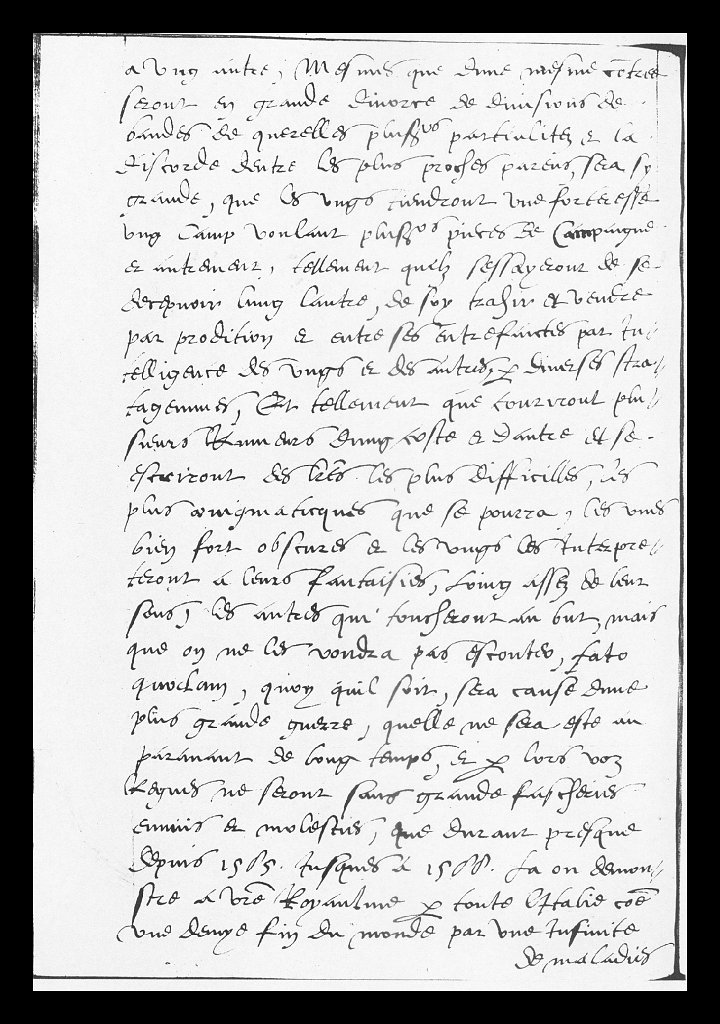 a vng autre, Mesmes que d'une mesme cõtree
seront en grande divorce de divisions de
bandes de querelles plus^rs partialitez et la
discorde dentre les plus proches parens, sera sy
grande, que les vngs tiendront vne forteresse
vng Camp voulant plus^rs pieces de Campaigne
et autrement, tellement quilz sessayeront de se
decepuoir lung lautre, de soy trahir et vendre
par prodition et entre ses entrefaictes par In-
telligence des vngs et des autres, p diverses stra-
tagemmes, Et tellement que courriront plu-
sieurs Rumeurs dung coste et dautre et se
escriront des lr̃es les plus difficilles, les
plus œnigmaticques que se pourra, les vnes
bien fort obscures et les vngs les Interpre-
teront a leurs fantaisies, Loing assez de leur
sens, les autres qui toucheront au but, mais
que on ne les voudra pas escouter, fato
quodam, quoy quil soit, sera cause dune
plus grande guerre, quelle ne sera este au
paravant de long temps, et p lors voz
Regnes ne seront sans grande fascheries
ennuis et molesties, que durant presque
depuis 1565. Jusques a 1568. La on demon-
stre a vr̃e Royaulme p toute l'Italie cõe
vne demye fin du monde par vne Infinite
de maladies